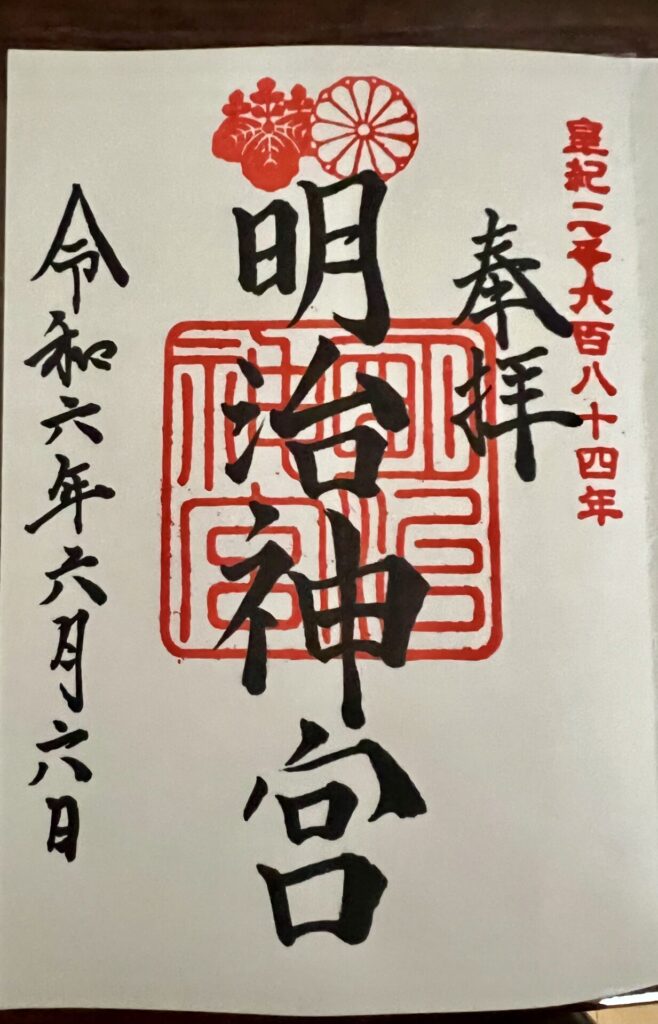 皇紀二千六百八十四年
奉拝
明治神宮
明治神宮
令和六年六月六日